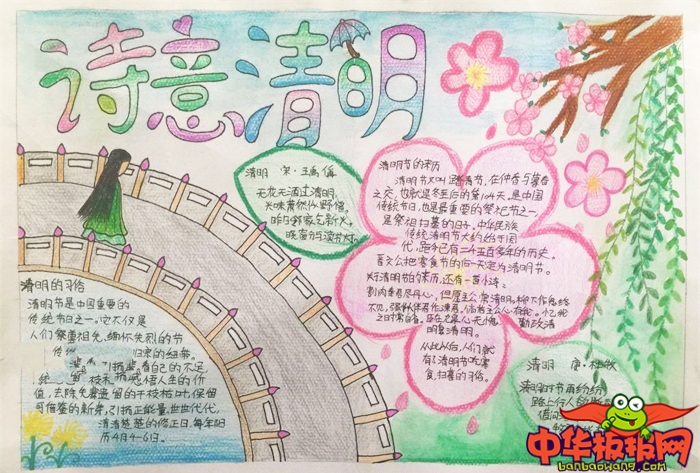 诗意清明
清明 宋·王禹偁
无花无酒过清明,
兴味萧然似野僧。
昨日邻家乞新火,
晓窗分与读书灯。
清明节的来历
清明节又叫踏青节,在仲春与暮春
之交,也就是冬至后的第104天,是中国
传统节日,也是最重要的祭祀节之一
是祭祖扫墓的日子。中华民族
传统清明节大约始于周
代,距今已有二千五百多年的历史。
晋文公把寒食节的后一天定为清明节。
关于清明节的来历,还有一首小诗:
割肉奉君尽丹心,但愿主公常清明。柳下作鬼终
不见,强似伴君作谏臣。倘若主公心有我,忆我
之时常自省。臣在九泉心无愧,
勤政清
明复清明。
从此以后,人们就
有了清明节吃寒
食,扫墓的习俗。
清明的习俗
清明节是中国重要的
传统节日之一,它不仅是
人们祭奠祖先、缅怀先烈的节
归宗的纽带。
看自己的不足,
感悟人生的价
值,去除冬寒遗留的干枝枯叶,保留
可借鉴的新芽,引扬正能量,世世代代,
清清楚楚的修正日,每年阳
历4月4-6日。
清明 唐·杜牧
清明时节雨纷纷
路上行人欲断
借问
中华板报网
banbaowang.com